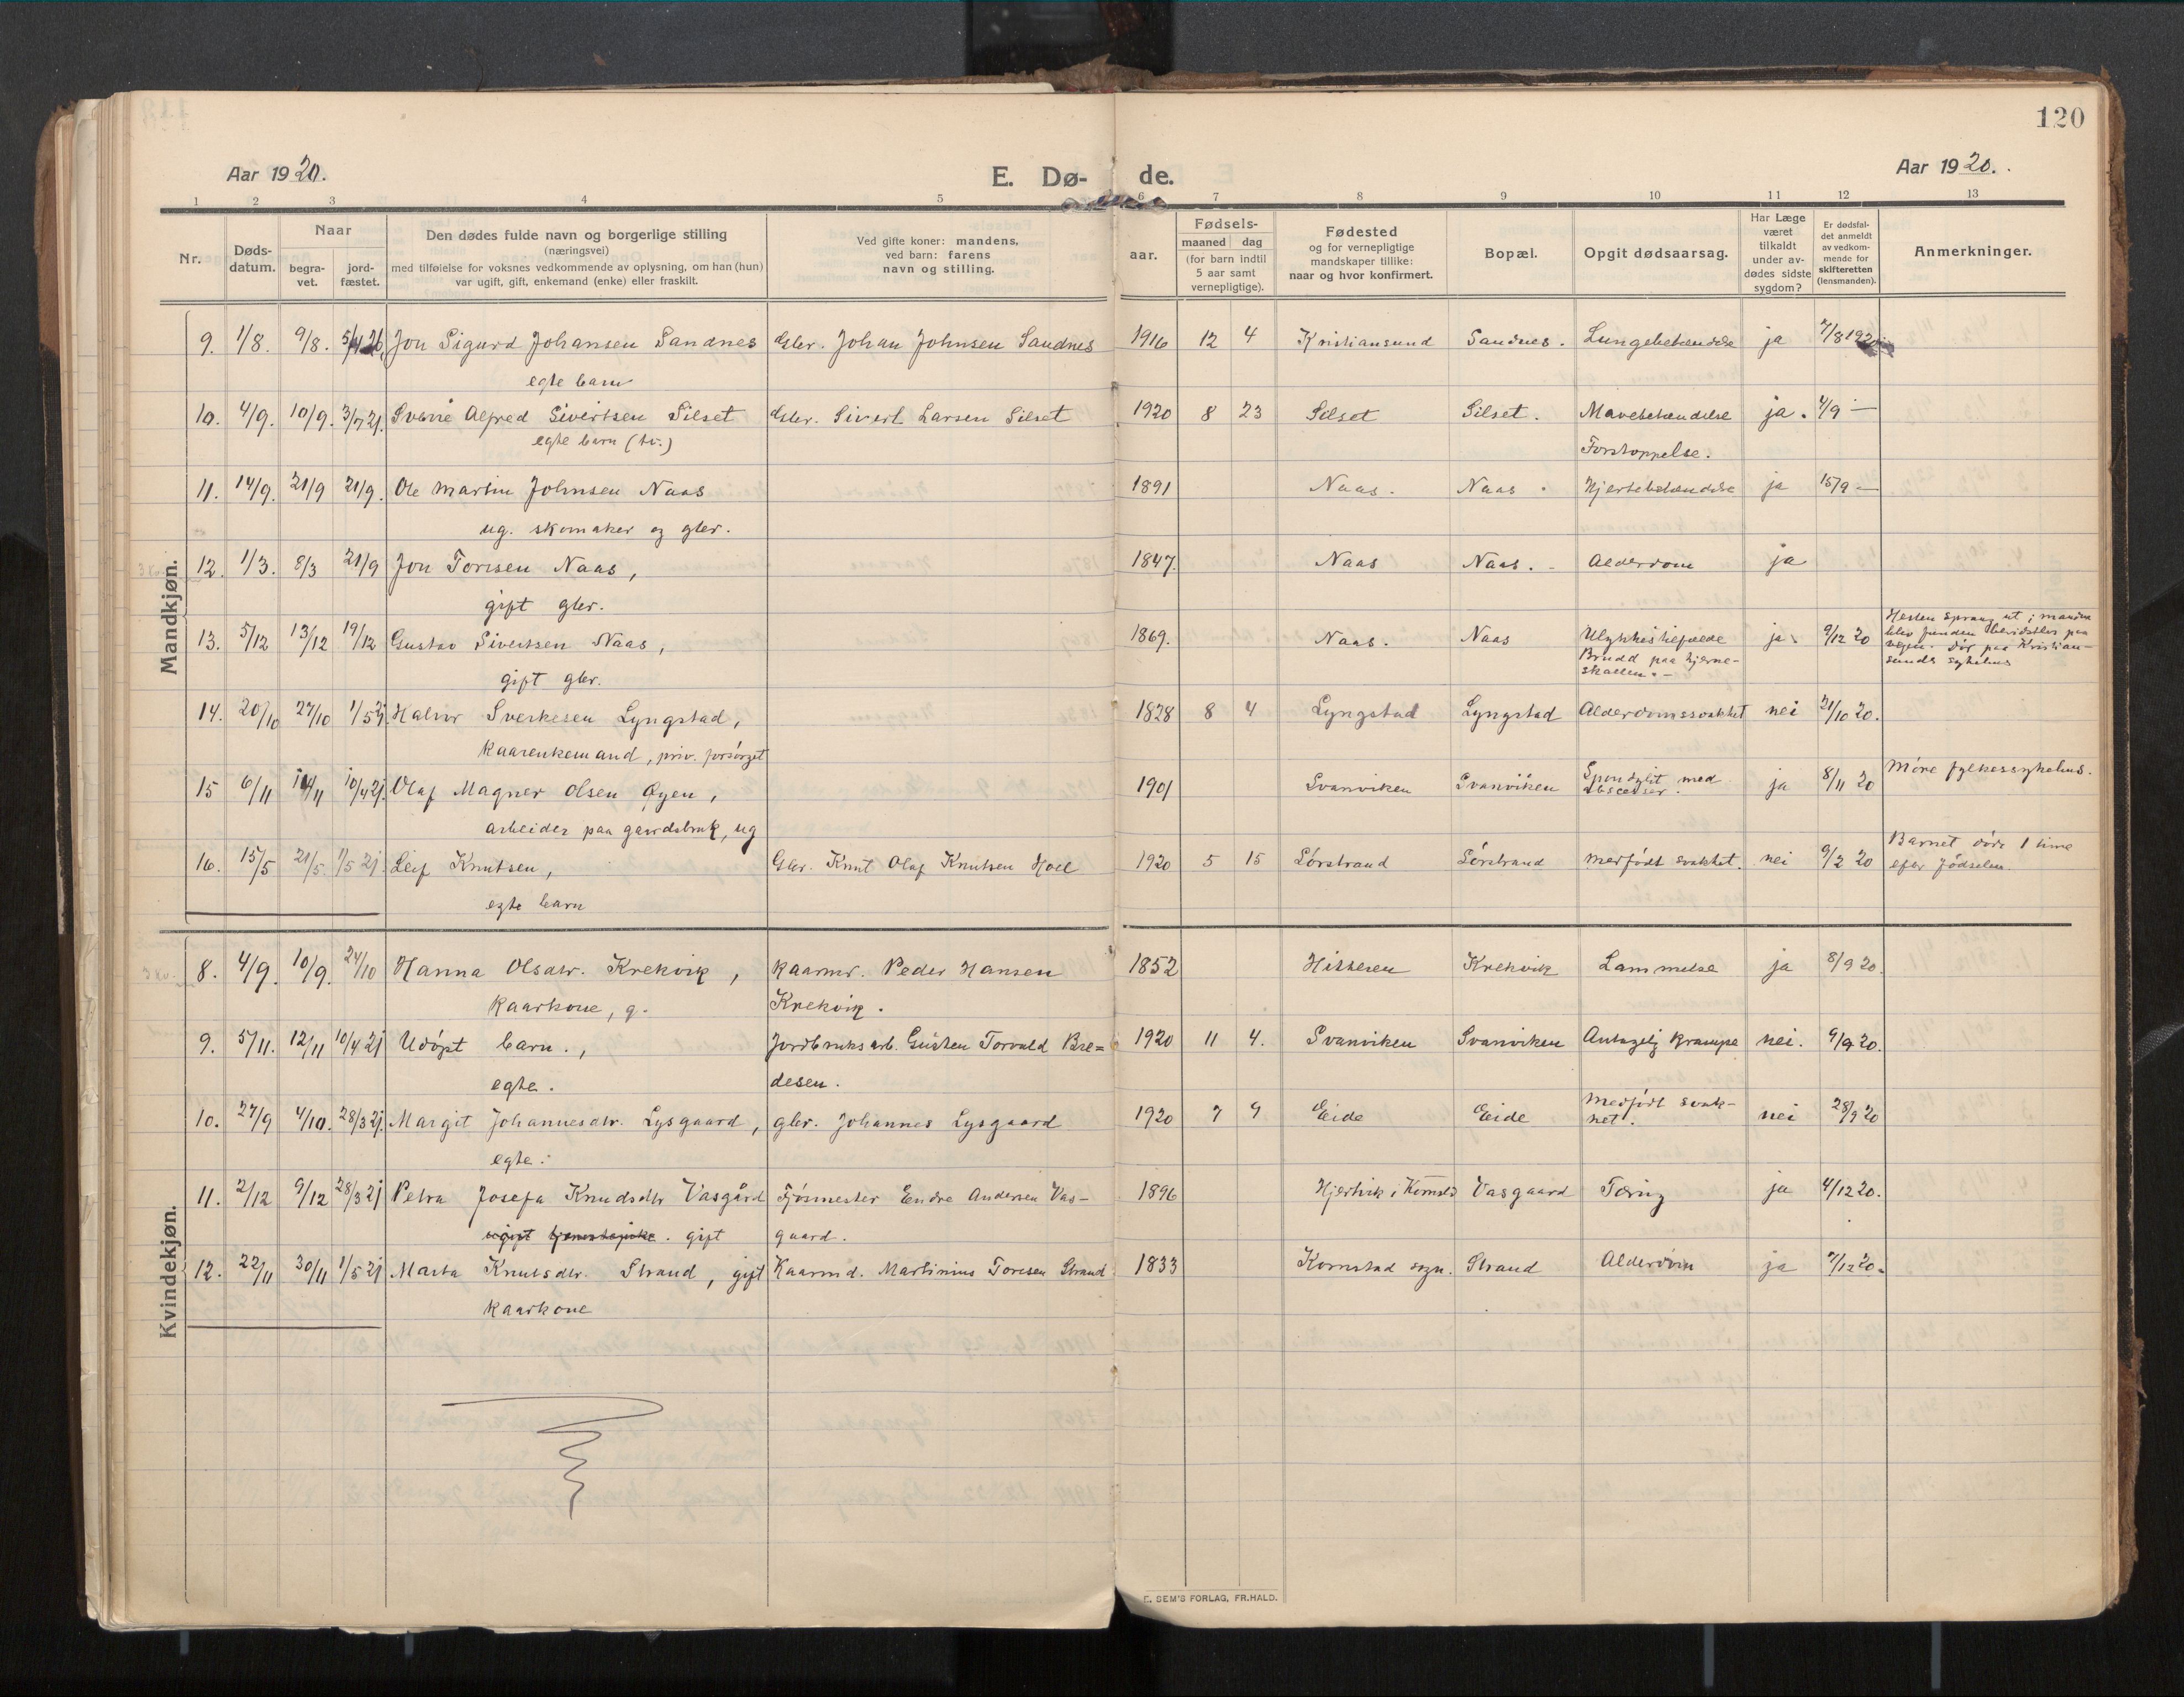 120
Aar 1920.
E. Dø- de.
Aar 1920.
1 2 3 4 5 6 7 8 9 10 11 12 13
Nr.
Døds-
datum.
Naar
begra-
vet.
jord-
fæstet.
Den dødes fulde navn og borgerlige stilling
(næringsvei)
med tilføielse for voksnes vedkommende av oplysning, om han (hun)
var ugift, gift, enkemand (enke) eller fraskilt.
Ved gifte koner: mandens,
ved barn: farens
navn og stilling.
aar.
Fødsels-
maaned dag
(for barn indtil
5 aar samt
vernepligtige).
Fødested
og for vernepligtige
mandskaper tillike:
naar og hvor konfirmert.
Bopæl.
Opgit dødsaarsag.
Har Læge
været
tilkaldt
under av-
dødes sidste
sygdom?
Er dødsfal-
det anmeldt
av vedkom-
mende for
skifteretten
(lensmanden).
Anmerkninger.
Mandkjøn.
9. 1/8. 9/8. 5/4 21. Jon Sigurd Johansen Sandnes Gbr. Johan Johnsen Sandnes 1916 12 4 Kristiansund Sandnes. Lungebetændelse ja 7/8 1920
egte barn
10. 4/9. 10/9. 3/7 21. Sverre Alfred Sivertsen Silset Gbr. Sivert Larsen Silset 1920 8 23 Silset Silset. Mavebetændelse ja. 4/9 —
egte barn (tv.) Forstoppelse.
11. 14/9. 21/9 21/9. Ole Martin Johnsen Naas 1891 Naas. Naas. Hjertebetændelse ja 15/9 —
ug. skomaker og gbr.
12. 1/3. 8/3 21/9 Jon Toresen Naas, 1847. Naas Naas. Alderdom ja
gift gbr.
13. 5/12 13/12 19/12 Gustav Sivertsen Naas, 1869. Naas. Naas Ulykkestilfælde ja 9/12 20 Hesten sprang ut; manden
blev funden bevidstløs paa
veien. Dør paa Kristian-
sunds sykehus
gift gbr. Brudd paa hjerne-
skallen. –
14. 20/10 27/10 1/5 21 Halvor Sverkesen Lyngstad, 1828 8 4 Lyngstad Lyngstad Alderdomssvakhet nei 21/10 20.
Kaarenkemand, priv. forsörget
15 6/11 14/11 10/4 21. Olaf Magner Olsen Øyen, 1901 Svanviken Svanviken Spondylit med
abscesser. ja 8/11 20 Möre fylkessykehus.
arbeider paa gaardsbruk, ug
16. 15/5 21/5. 1/5 21. Leif Knutsen, Gbr. Knut Olaf Knutsen Hoel 1920 5 15 Lórstrand Lórstrand Medfödt svakhet. nei 9/2 20 Barnet döde 1 time
efter födselen.
egte barn
Kvindekjøn.
8. 4/9. 10/9. 24/10 Hanna Olsdtr. Krekvik, Kaarmd. Peder Hansen 1852 Krekvik Lammelse ja 8/9 20.
Kaarkone, g. Krekvik.
9. 5/11. 12/11 10/4 21 Udöpt barn., Jordbruksarb. Torvald Bre= 1920 11 4. Svanviken Svanviken Antagelig Krampe nei. 9/9 20.
egte. desen.
10. 27/9 4/10. 28/3 21. Margit Johannesdtr. Lysgaard, gbr. Johannes Lysgaard 1920 7 9 Eide Eide Medfödt svak-
het. nei 28/9 20
egte.
11. 2/12 9/12 28/3 21 Petra Josefa Knudsdtr Vasgård Fjösmester Endre Andersen Vas- 1896 Hjertvik i Kornstd Vasgaard Tæring ja 4/12 20.
ugift tjenestepike. gift gaard.
12. 22/11 30/11 1/5 21 Marta Knutsdtr. Strand, gift Kaarmd. Martinius Toresen Strand 1833 Kornstad sogn. Strand Alderdom ja 7/12 20.
Kaarkone
E. SEM'S FORLAG, FR.HALD.